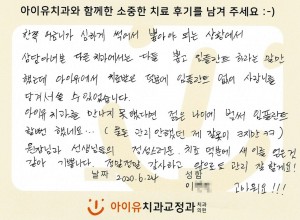 아이유치과와 함께한 소중한 치료 후기를 남겨 주세요 :-)
한쪽 어금니가 심하게 썩어서 뽑아야 되는 상황에서
상담받아본 다른 치과에서는 다들 뽑고 임플란트 하라는 말만
했는데 아이유에서 치료받은 덕분에 임플란트 없이 사랑니를
당겨서 쓸 수 있었습니다.
아이유치과를 만나지 못했다면 젊은 나이에 벌써 임플란트
할뻔 했네요... ( 물론 관리 안했던 제 잘못이 크지만 ㅋㅋ)
원장님과 선생님들의 정성스러운 치료 덕분에 새 이를 얻은것
같아 기쁩니다. 정말정말 감사하고 앞으로도 관리 잘 할게요!
날짜 2020.6.24 성함 이
고마워요!!!
아이유치과교정과 치과의원